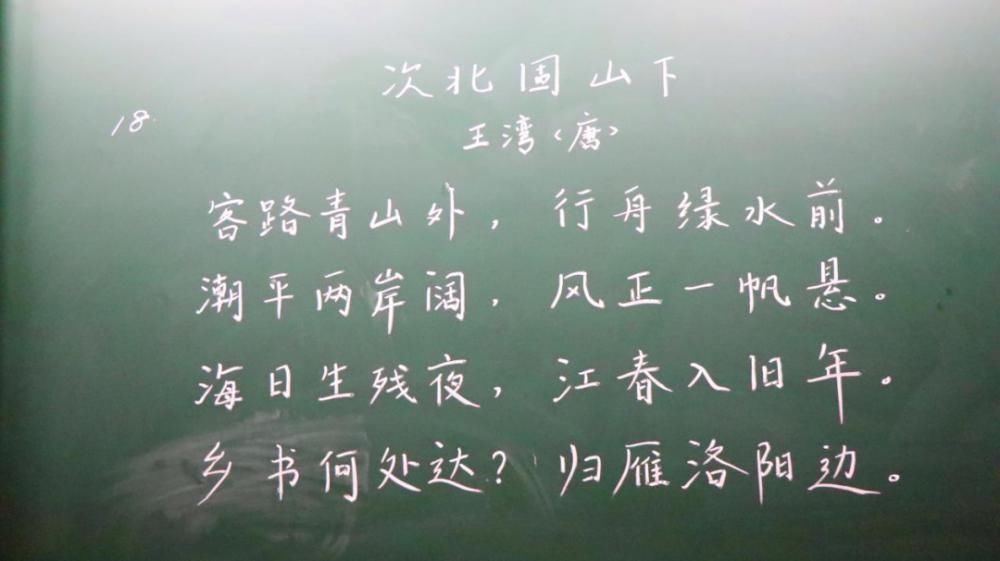 次北固山下
18.
王湾〈唐〉
客路青山外，行舟绿水前。
潮平两岸阔，风正一帆悬。
海日生残夜，江春入旧年。
乡书何处达？归雁洛阳边。